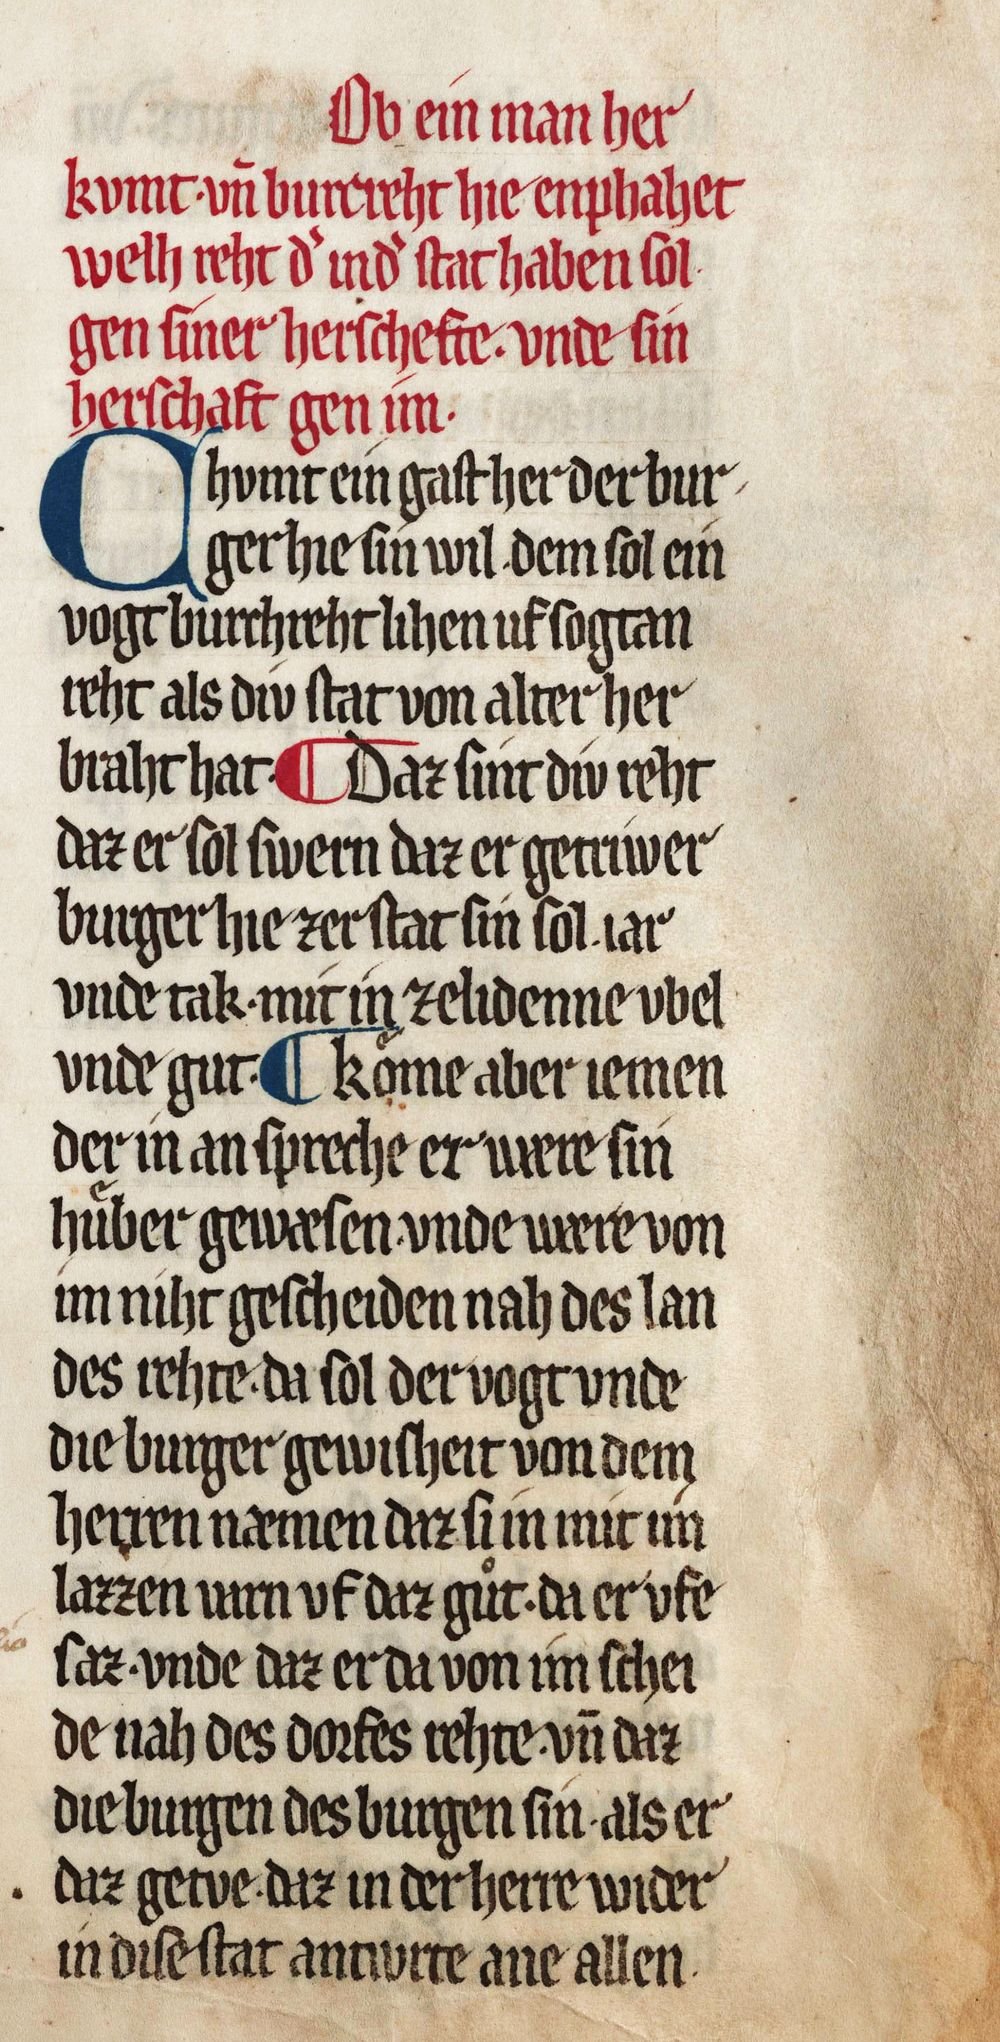 Ob ein man her
kvmt·vn̄ burcreht hie enphahet
welh reht d͛ in d͛ stat haben sol·
gen siner herschefte· vnde sin
herschaft gen im·
Chvmt ein gast her der bur
ger hie sin wil·dem sol ein
vogt burchreht lihen uf sogtan
reht als div stat von alter her
braht hat· ¶ Daz sint div reht
daz er sol swern daz er getriwer
burger hie zer stat sin sol·iar
vnde tak·mit in zelidenne vbel
vnde gut· ¶ koͤme aber iemen
der in an spreche er wære sin
huͤber gewæsen·vnde wære von
im niht gescheiden nah des lan
des rehte·da sol der vogt vnde
die burger gewisheit von dem
herren næmen daz si in mit im
lazzen varn vf daz guͦt·da er vfe
saz·vnde daz er da von im schei
de nah des dorfes rehte·vn̄ daz
die burgen des burgen sin·als er
daz getve·daz in der herre wider
in dise stat antwrte ane allen·